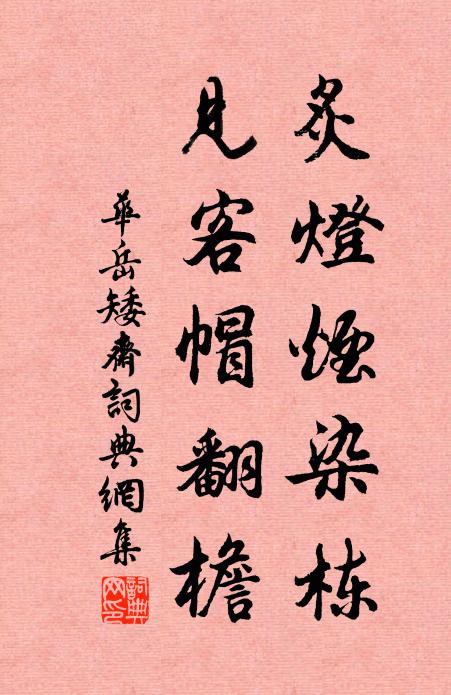 炙燈煙染栋
見客帽翻檐
華岳矮齋詞典網集
詞典网印